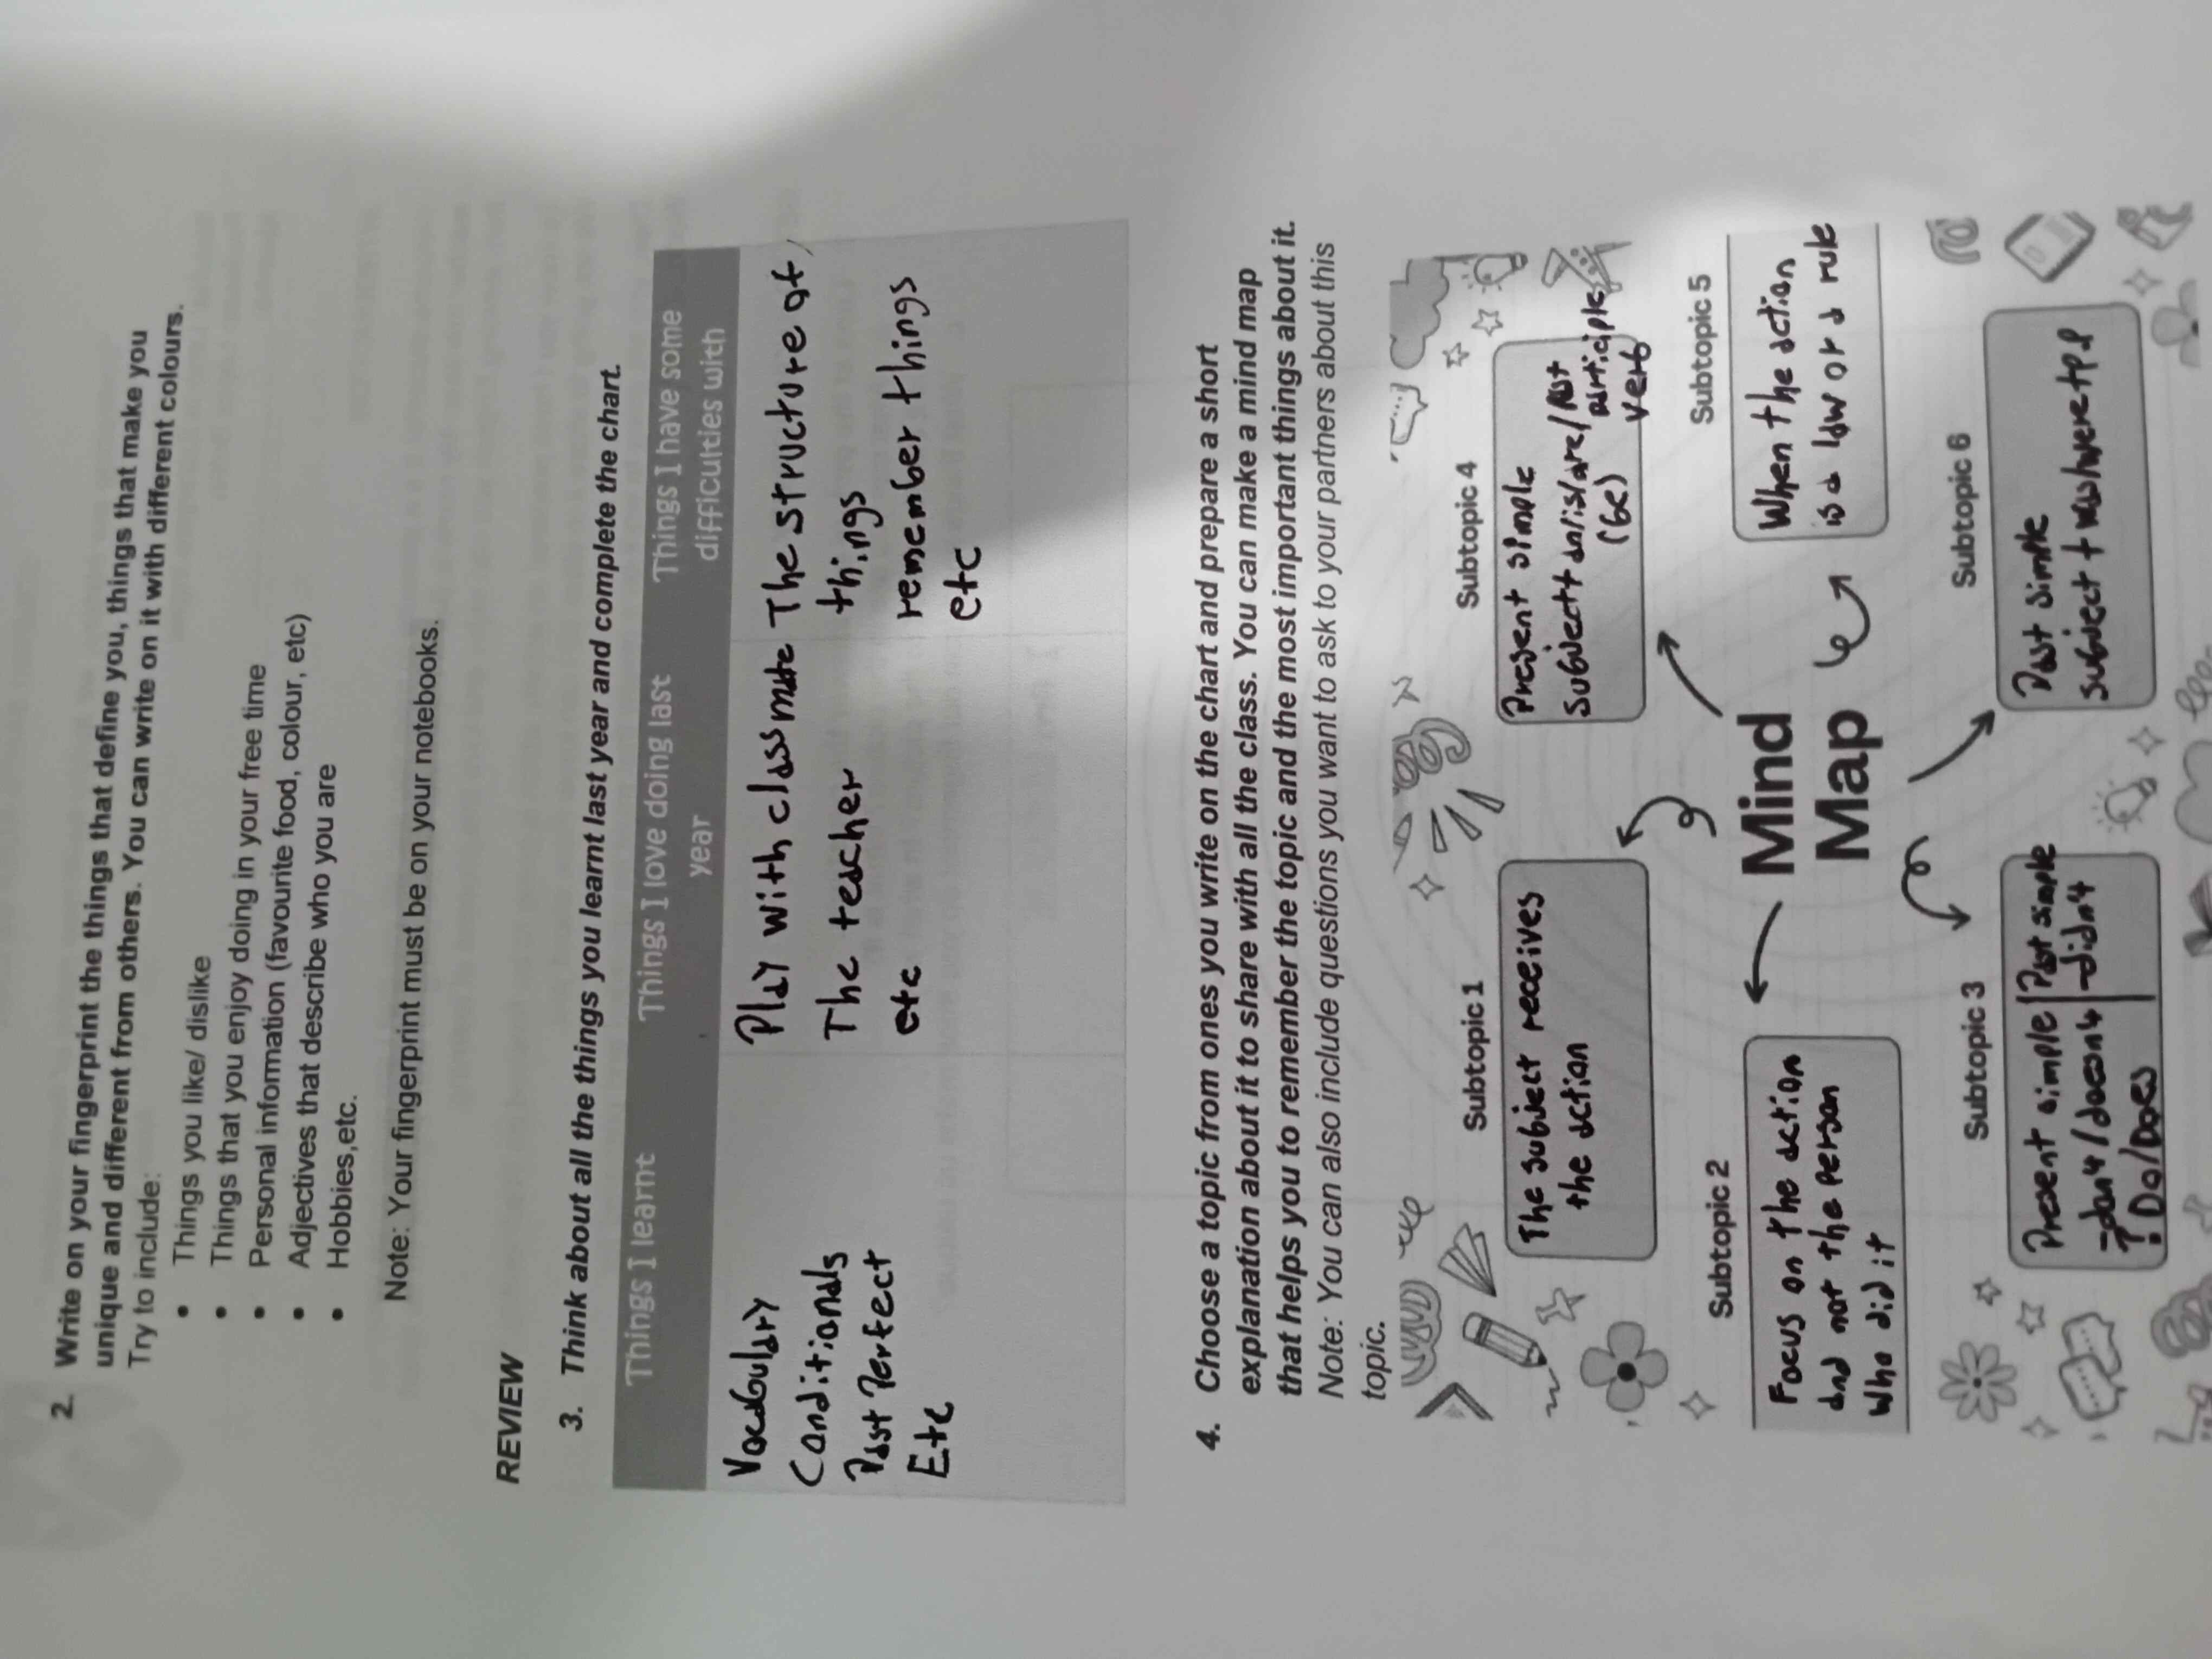 2. Write on your fingerprint the things that define you, things that make you
unique and different from others. You can write on it with different colours.
Try to include:
• Things you like/ dislike
• Things that you enjoy doing in your free time
• Personal information (favourite food, colour, etc)
• Adjectives that describe who you are
• Hobbies,etc.
Note: Your fingerprint must be on your notebooks.
REVIEW
3. Think about all the things you learnt last year and complete the chart.
Things I learnt
Vocabulary
Conditionals
Past Perfect
Etc
Things I love doing last
year
Play with classmate
The teacher
etc
Things I have some
difficulties with
The structure of
things
remember things
etc
4. Choose a topic from ones you write on the chart and prepare a short
explanation about it to share with all the class. You can make a mind map
that helps you to remember the topic and the most important things about it.
Note: You can also include questions you want to ask to your partners about this
topic.
Subtopic 1
The subject receives
the action
Subtopic 4
Present simple
subject+am/is/are/Past
participle
(be) verb
Subtopic 2
Focus on the action
and not the person
who did it
Mind
Map
Subtopic 5
When the action
is a law or a rule
Subtopic 3
Present simple | Past simple
-don4/doesn4 -didn4
? Do/Does
Subtopic 6
Past simple
subject + was/were+p.p